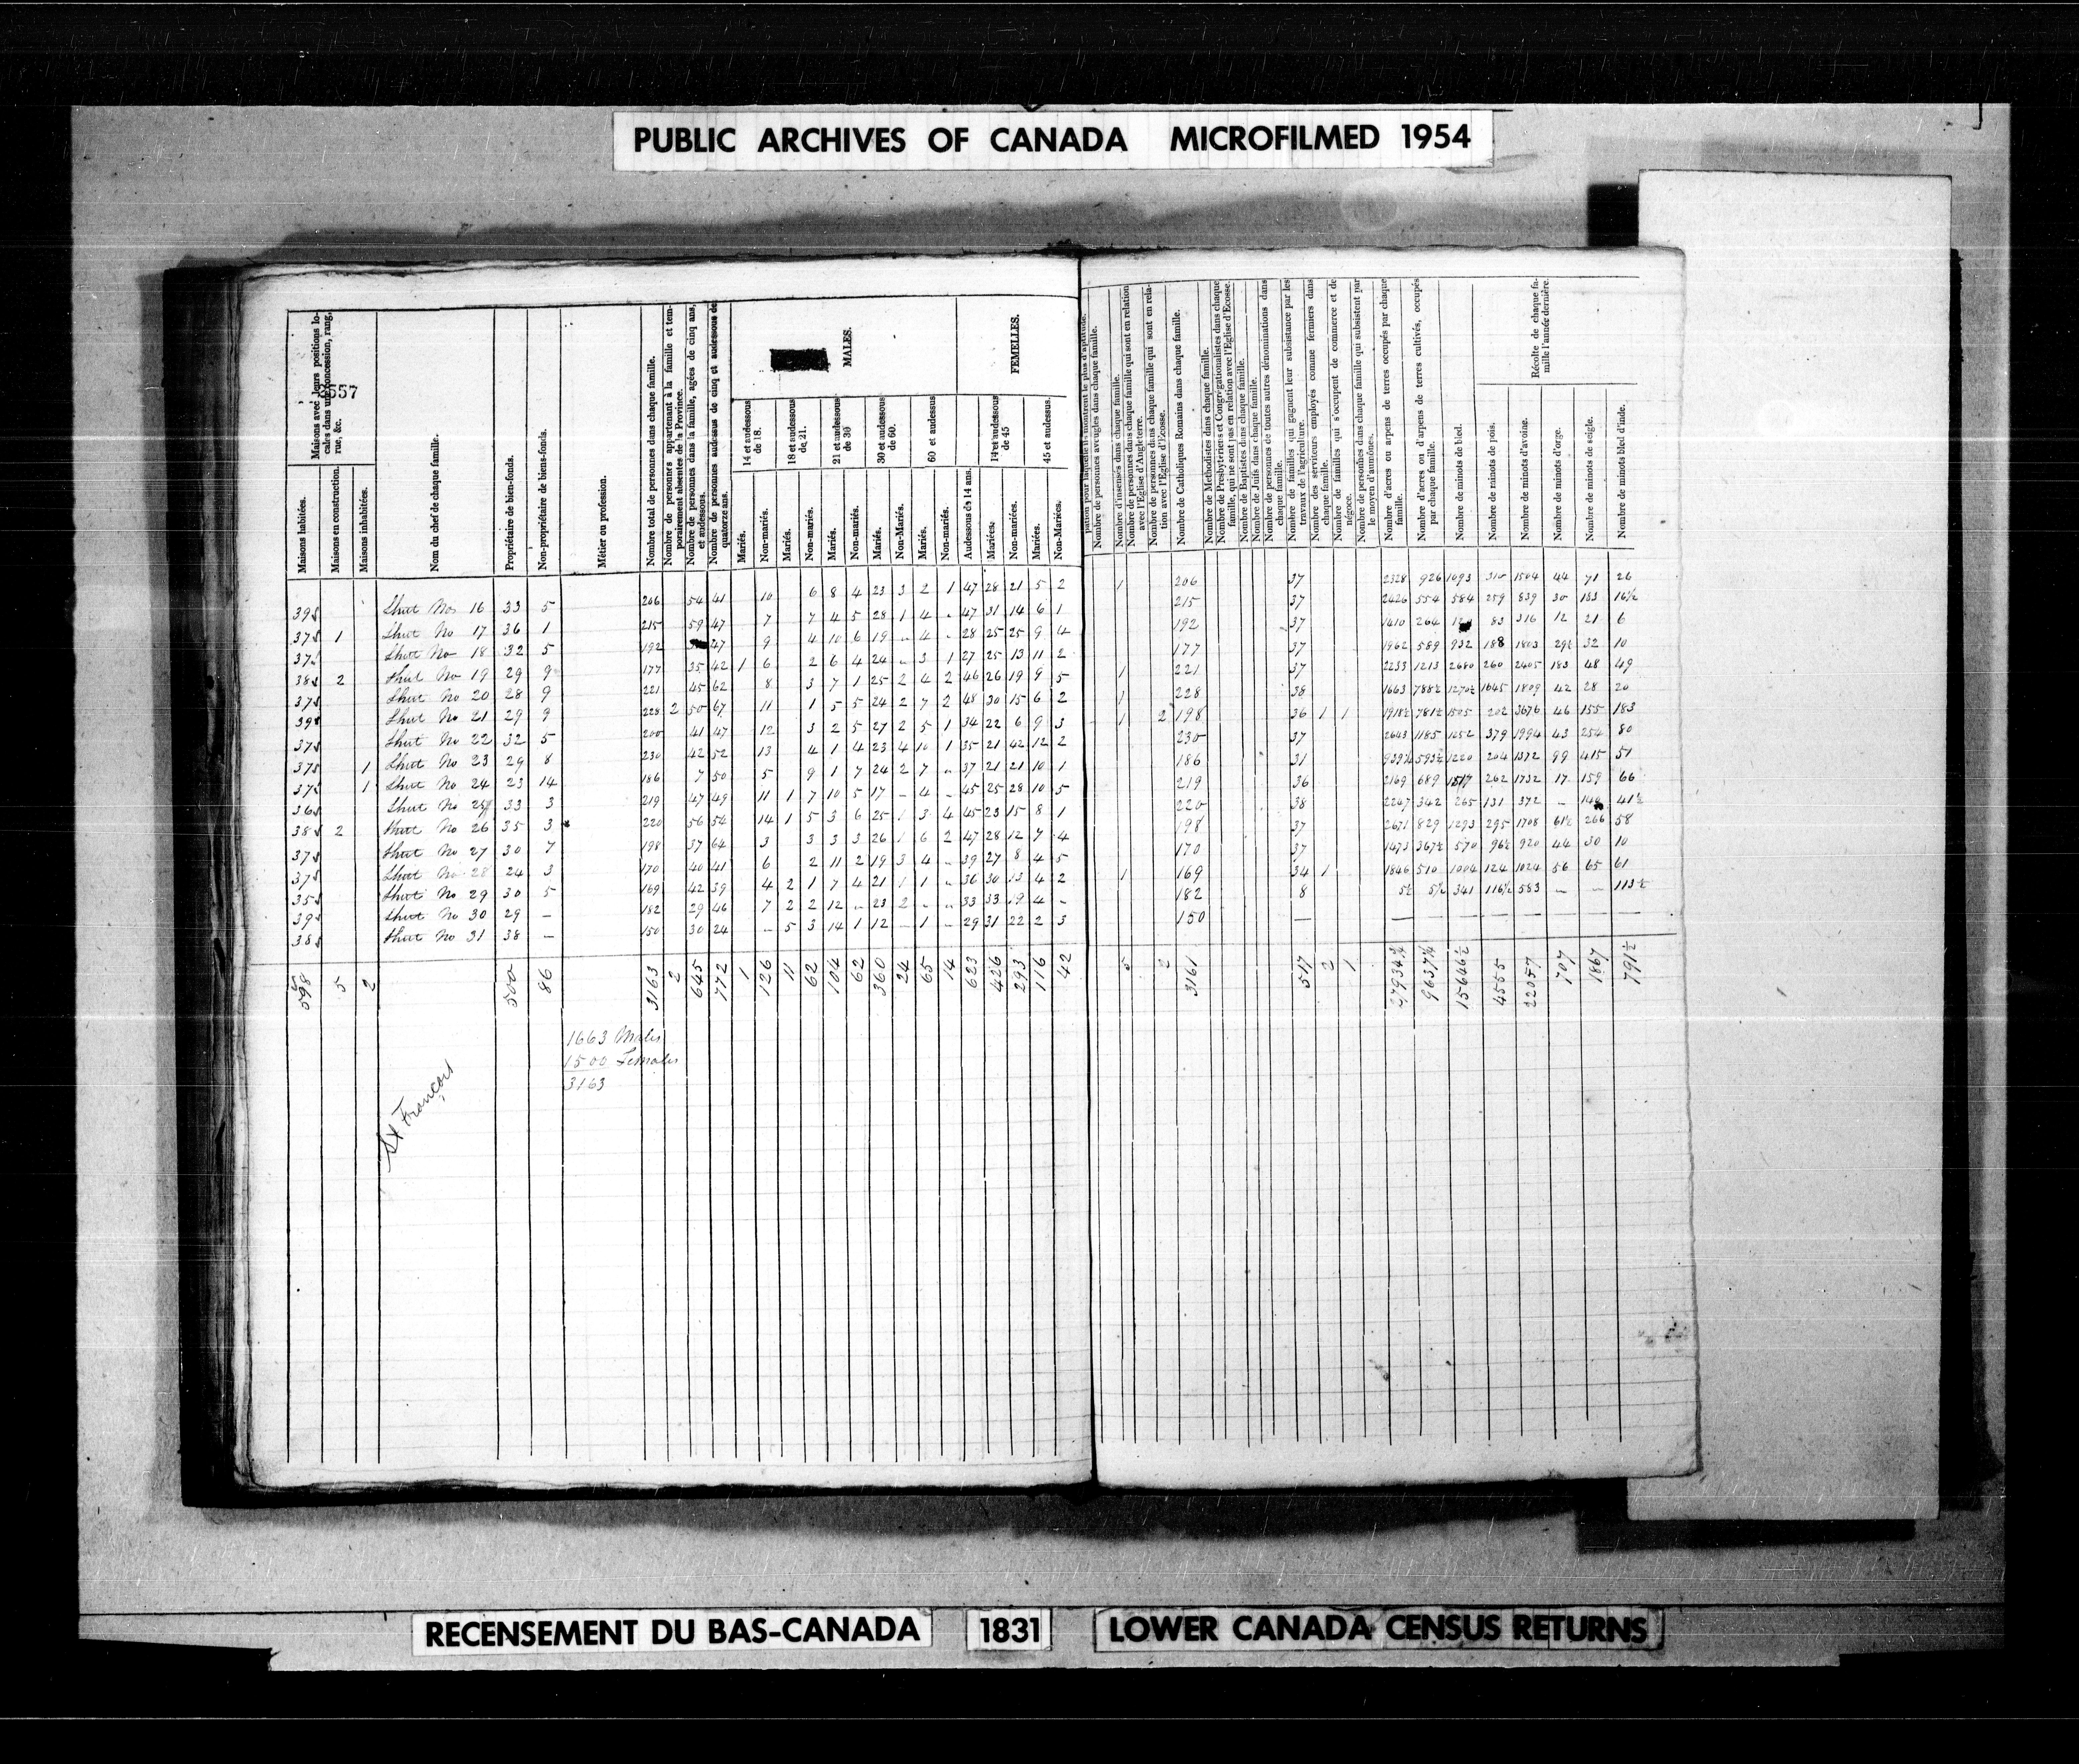 PUBLIC ARCHIVES OF CANADA MICROFILMED 1954
Maisons avec leurs positions locales dans une concession, rang, rue, &c.
Maisons habitées.
Maisons en construction.
Maisons inhabitées.
Nom du chef de chaque famille.
Propriétaire de bien-fonds.
Non-propriétaire de biens-fonds.
Métier ou profession.
Nombre total de personnes dans chaque famille.
Nombre de personnes appartenant à la famille et temporairement absentes de la Province.
Nombre de personnes dans la famille, agées de cinq ans, et audessous.
Nombre de personnes audessus de cinq et audessous de quatorze ans.
MALES.
14 et audessous de 18.
18 et audessous de 21.
21 et audessous de 30
30 et audessous de 60.
60 et audessus
Mariés.
Non-mariés.
Mariés.
Non-mariés.
Mariés.
Non-mariés.
Mariés.
Non-Mariés.
Mariés.
Non-mariés.
FEMELLES.
Audessous de 14 ans.
14 et audessous de 45
45 et audessus.
Mariées.
Non-mariées.
Mariées.
Non-Mariées.
pation pour laquelle ils montrent le plus d'aptitude.
Nombre de personnes aveugles dans chaque famille.
Nombre d'insensés dans chaque famille.
Nombre de personnes dans chaque famille qui sont en relation avec l'Eglise d'Angleterre.
Nombre de personnes dans chaque famille qui sont en relation avec l'Eglise d'Ecosse.
Nombre de Catholiques Romains dans chaque famille.
Nombre de Methodistes dans chaque famille.
Nombre de Presbytériens et Congrégationalistes dans chaque famille, qui ne sont pas en relation avec l'Eglise d'Ecosse.
Nombre de Baptistes dans chaque famille.
Nombre de Juifs dans chaque famille.
Nombre de personnes de toutes autres dénominations dans chaque famille.
Nombre de familles qui gagnent leur subsistance par les travaux de l'agriculture.
Nombre des serviteurs employés comme fermiers dans chaque famille.
Nombre de familles qui s'occupent de commerce et de négoce.
Nombre de personnes dans chaque famille qui subsistent par le moyen d'aumônes.
Nombre d'acres ou arpens de terres occupés par chaque famille.
Nombre d'acres ou d'arpens de terres cultivés, occupés par chaque famille.
Récolte de chaque famille l'année dernière.
Nombre de minots de bled.
Nombre de minots de pois.
Nombre de minots d'avoine.
Nombre de minots d'orge.
Nombre de minots de seigle.
Nombre de minots bled d'inde.
Sheet No 16 33 5 206 54 41 10 6 8 4 23 3 2 1 47 28 21 5 2 1 206 37 2328 926 1093 310 1504 44 71 26
Sheet No 17 36 1 215 59 47 7 7 4 5 28 1 4 47 31 14 6 1 215 37 2426 554 584 259 839 30 183 16½
Sheet No 18 32 5 192 47 9 4 10 6 19 4 28 25 25 9 4 192 37 1410 264 83 316 12 21 6
Sheet No 19 29 9 177 35 42 1 6 2 6 4 24 3 1 27 25 13 11 2 177 37 1962 589 932 188 1803 29½ 32 10
Sheet No 20 28 9 221 45 62 8 3 7 1 25 2 4 2 46 26 19 9 5 1 221 37 2233 1213 2680 260 2405 183 48 49
Sheet No 21 29 9 228 2 50 67 11 1 5 5 24 2 7 2 48 30 15 6 2 1 228 38 1663 788½ 1270½ 1045 1809 42 28 20
Sheet No 22 32 5 200 41 47 12 3 2 5 27 2 5 1 34 22 6 9 3 1 2 198 36 1 1 1918½ 781½ 1505 202 3676 46 155 183
Sheet No 23 29 8 230 42 52 13 4 1 4 23 4 10 1 35 21 42 12 2 230 37 2643 1185 1252 379 1994 43 254 80
Sheet No 24 23 14 186 7 50 5 9 1 7 24 2 7 37 21 21 10 1 186 31 593½ 1220 204 1372 99 415 51
Sheet No 25 33 3 219 47 49 11 1 7 10 5 17 4 45 25 28 10 5 219 36 2169 689 1517 262 1732 17 159 66
Sheet No 26 35 3 220 56 54 14 1 5 3 6 25 1 3 4 45 23 15 8 1 220 38 2247 342 265 131 372 41½
Sheet No 27 30 7 198 37 64 3 3 3 3 26 1 6 2 47 28 12 7 4 198 37 2671 829 1293 295 1708 61½ 266 58
Sheet No 28 24 3 170 40 41 6 2 11 2 19 3 4 39 27 8 4 5 170 37 1473 367½ 570 96½ 920 44 30 10
Sheet No 29 30 5 169 42 39 4 2 1 7 4 21 1 1 36 30 13 4 2 1 169 34 1 1846 510 1004 124 1024 56 65 61
Sheet No 30 29 — 182 29 46 7 2 2 12 23 2 33 33 19 4 182 8 5½ 5½ 341 116½ 583 — — 113½
Sheet No 31 38 — 150 30 24 — 5 3 14 1 12 — 1 — 29 31 22 2 3 150 —
598 5 2 500 86 3163 2 645 772 1 126 11 62 104 62 360 24 65 14 623 426 293 116 42 5 2 3161 517 2 1 27934¾ 9631¼ 15646½ 4555 22057 707 1867 791½
1663 Males
1500 Females
3163
St François
RECENSEMENT DU BAS-CANADA 1831 LOWER CANADA CENSUS RETURNS